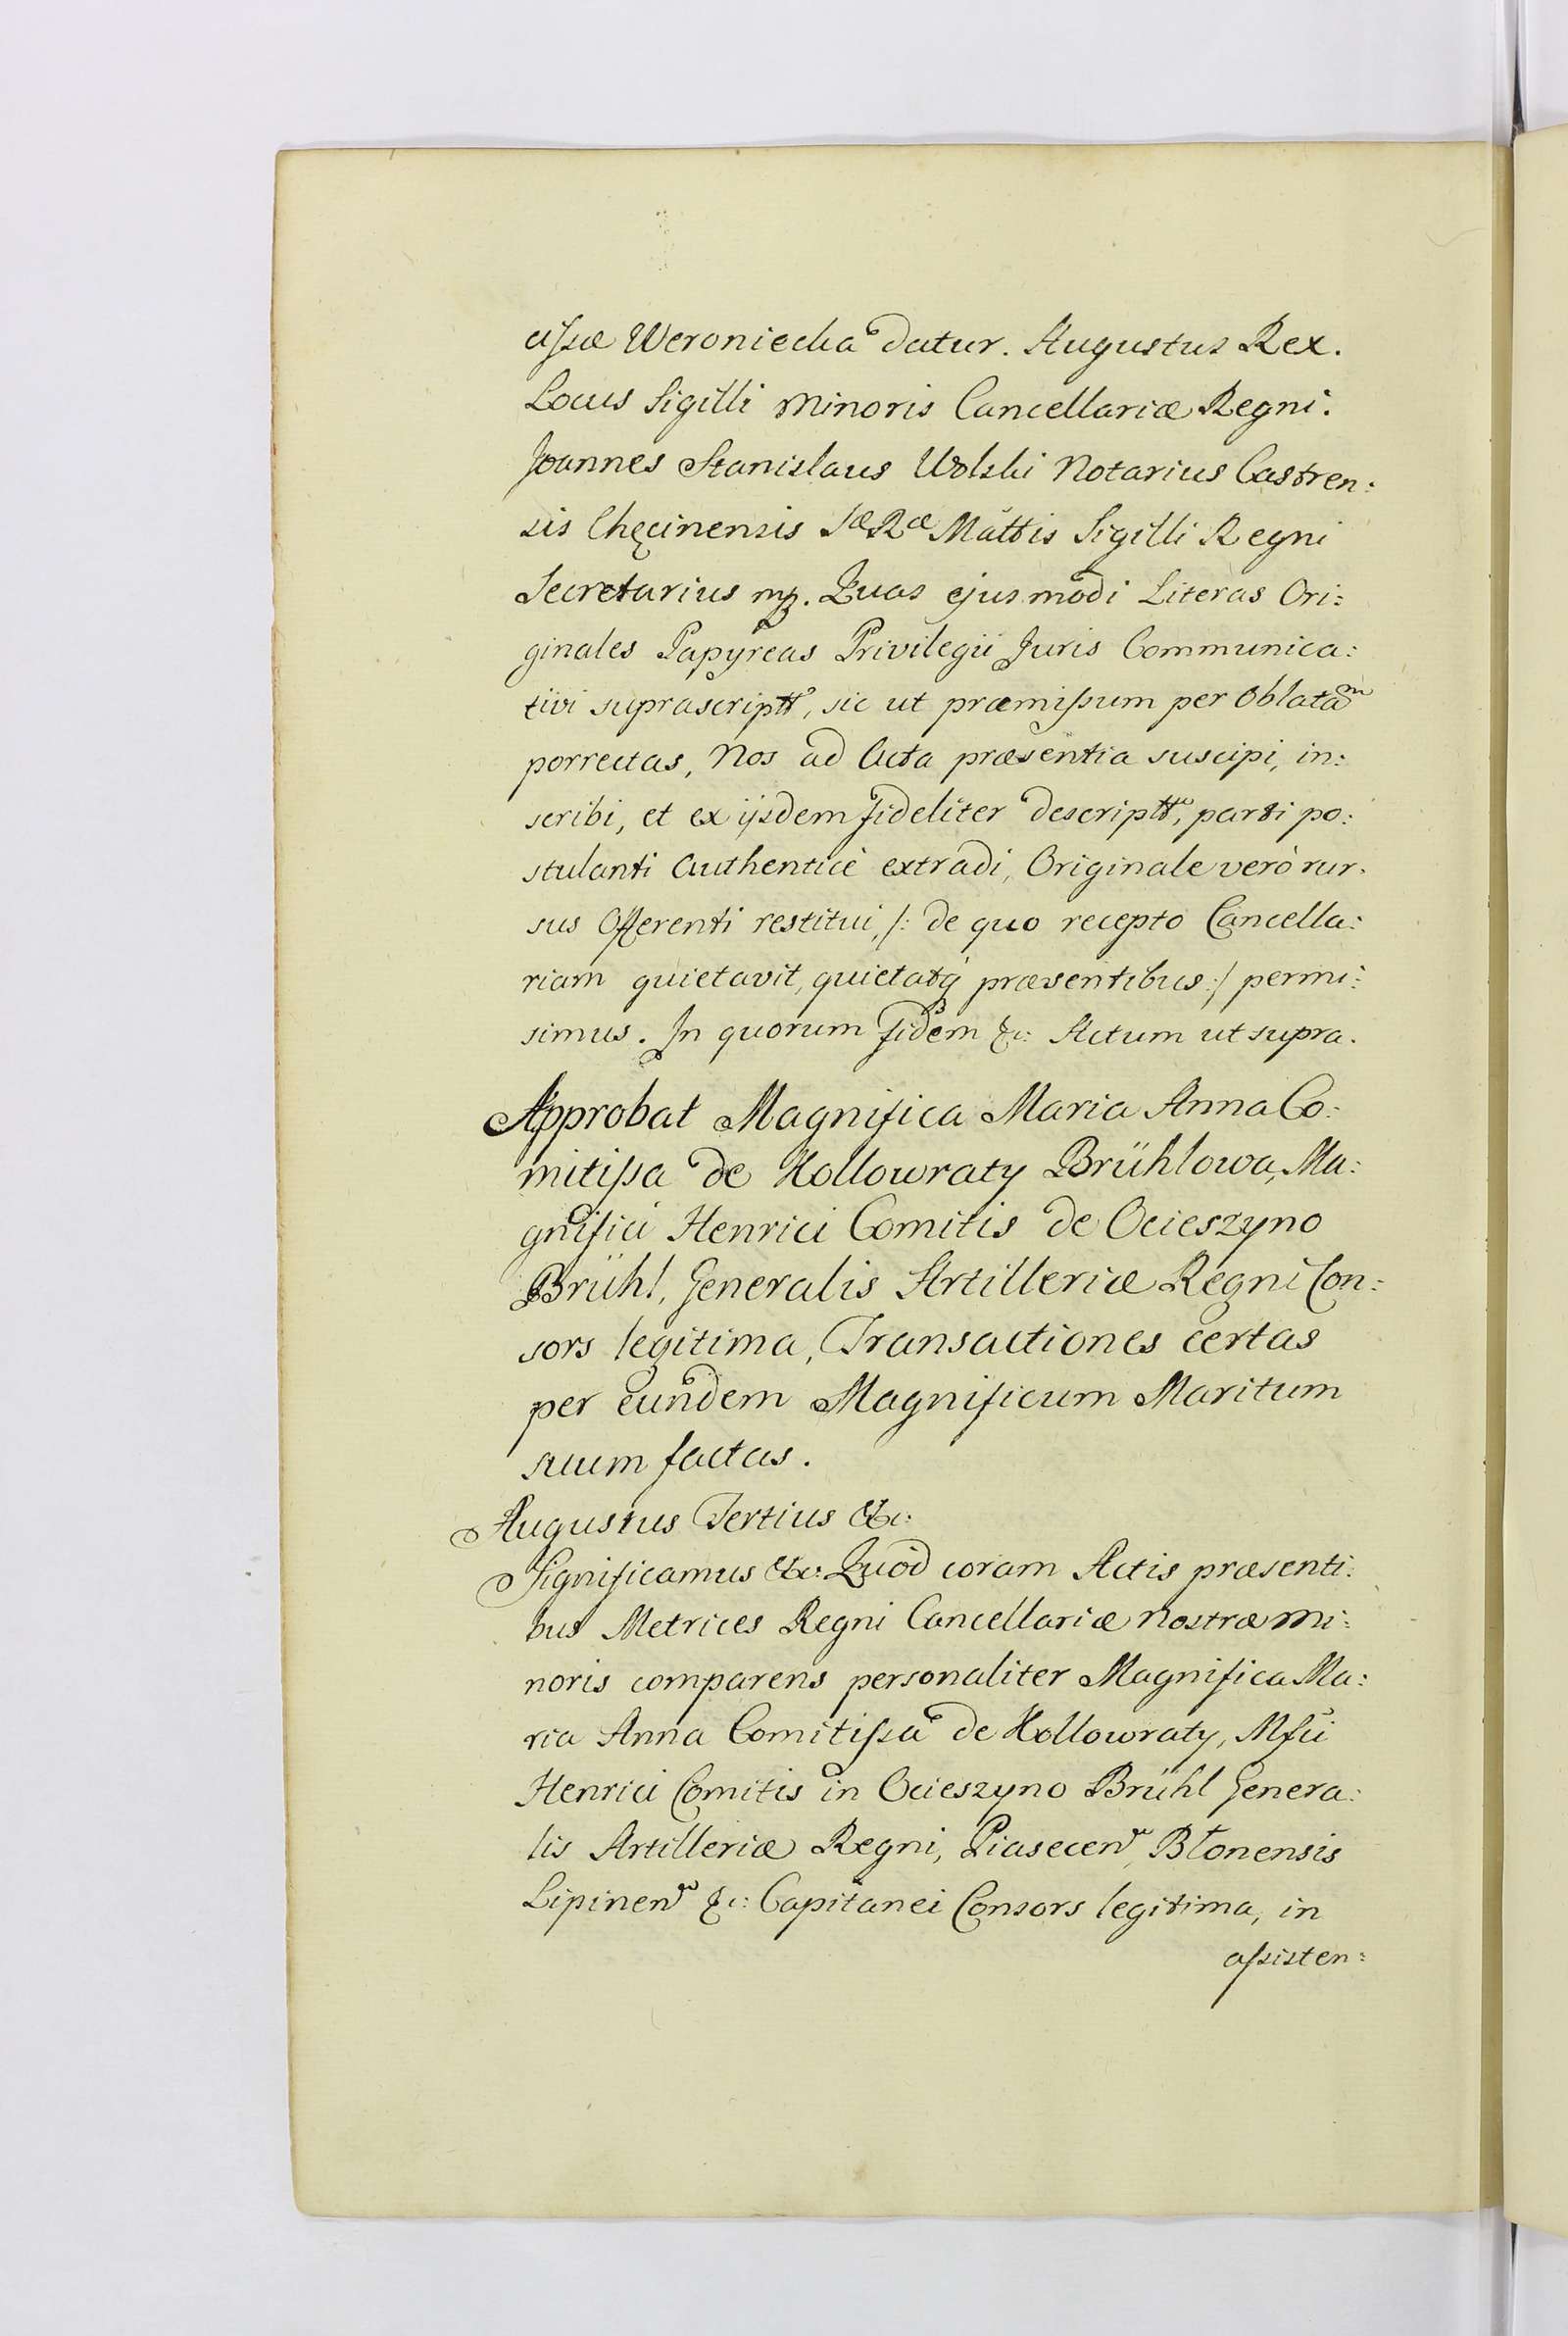 cissæ Weroniecka datur. Augustus Rex.
Locus Sigilli Minoris Cancellariæ Regni.
Joannes Stanislaus Wolski Notarius Castren:
sis Chęcinensis Sæ Ræ Mattis Sigilli Regni
Secretarius mp. Quas ejusmodi Literas Ori:
ginales Papyreas Privilegii Juris Communica:
tivi suprascriptt, sic ut præmissum per Oblatam
porrectas, Nos ad Acta præsentia suscipi, in:
scribi, et ex ijsdem fideliter descriptt, parti po:
stulanti Authenticè extradi, Originale verò rur.
sus Offerenti restitui, /: de quo recepto Cancella:
riam quietavit, quietatq præsentibus :/ permi:
simus. In quorum fidem &c: Actum ut supra.
Approbat Magnifica Maria Anna Co:
mitissa de Kollowraty Brühlowa, Ma:
gnifici Henrici Comitis de Ocieszyno
Brühl, Generalis Artilleriæ Regni Con:
sors legitima, Transactiones certas
per eundem Magnificum Maritum
suum factas.
Augustus Tertius &c:
Significamus &c: Quod coram Actis præsenti:
bus Metrices Regni Cancellariæ Nostræ Mi:
noris comparens personaliter Magnifica Ma:
ria Anna Comitissa de Kollowraty, Mfci
Henrici Comitis in Ocieszyno Brühl Genera:
lis Artilleriæ Regni, Piasecen, Błonensis
Lipinen &c: Capitanei Consors legitima, in
assisten: